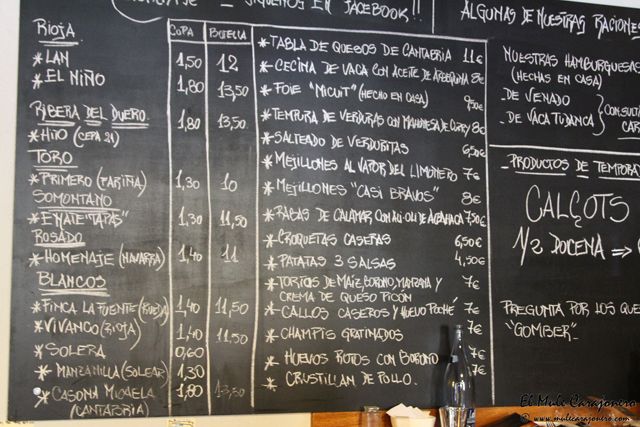 SIGUENOS EN FACEBOOK!!
COPA BOTELLA
RIOJA
*LAN 1,50 12
*EL NIÑO 1,80 13,50
RIBERA DEL DUERO
*HITO (CEPA 21) 1,80 13,50
TORO
*PRIMERO (FARIÑA) 1,30 10
SOMONTANO
*ENATE "TAPAS" 1,30 11,50
ROSADO
*HOMENAJE (NAVARRA) 1,40 11
BLANCOS
*FINCA LA FUENTE (RUEDA) 1,40 11,50
*VIVANCO (RIOJA) 1,40 11,50
*SOLERA 0,60
*MANZANILLA (SOLEAR) 1,30
*CASONA MICAELA 1,80 13,50
(CANTABRIA)
*TABLA DE QUESOS DE CANTABRIA 11€
*CECINA DE VACA CON ACEITE DE ARBEQUINA 8€
*FOIE "MICUIT" (HECHO EN CASA) 9,50€
*TEMPURA DE VERDURAS CON MAHONESA DE CURRY 8€
*SALTEADO DE VERDURITAS 6,50€
*MEJILLONES AL VAPOR DEL LIMONERO 7€
*MEJILLONES "CASI BRAVOS" 8€
*RABAS DE CALAMAR CON ALI-OLI DE ALBAHACA 7,50€
*CROQUETAS CASERAS 6,50€
*PATATAS 3 SALSAS 4,50€
*TORTOS DE MAIZ, BORONO, MANZANA Y
CREMA DE QUESO PICÓN 7€
*CALLOS CASEROS Y HUEVO POCHÉ 7€
*CHAMPIS GRATINADOS 7€
*HUEVOS ROTOS CON BORONO 7€
*CRUSTILLAN DE POLLO. 7€
ALGUNAS DE NUESTRAS RACIONES
NUESTRAS HAMBURGUESAS
(HECHAS EN CASA)
-DE VENADO
-DE VACA TUDANCA
PRODUCTOS DE TEMPORA
CALÇOTS
1/2 DOCENA =>
PREGUNTA POR LOS QUE
"GOMBER"
El Mule Carajonero
© www.mulecarajonero.com